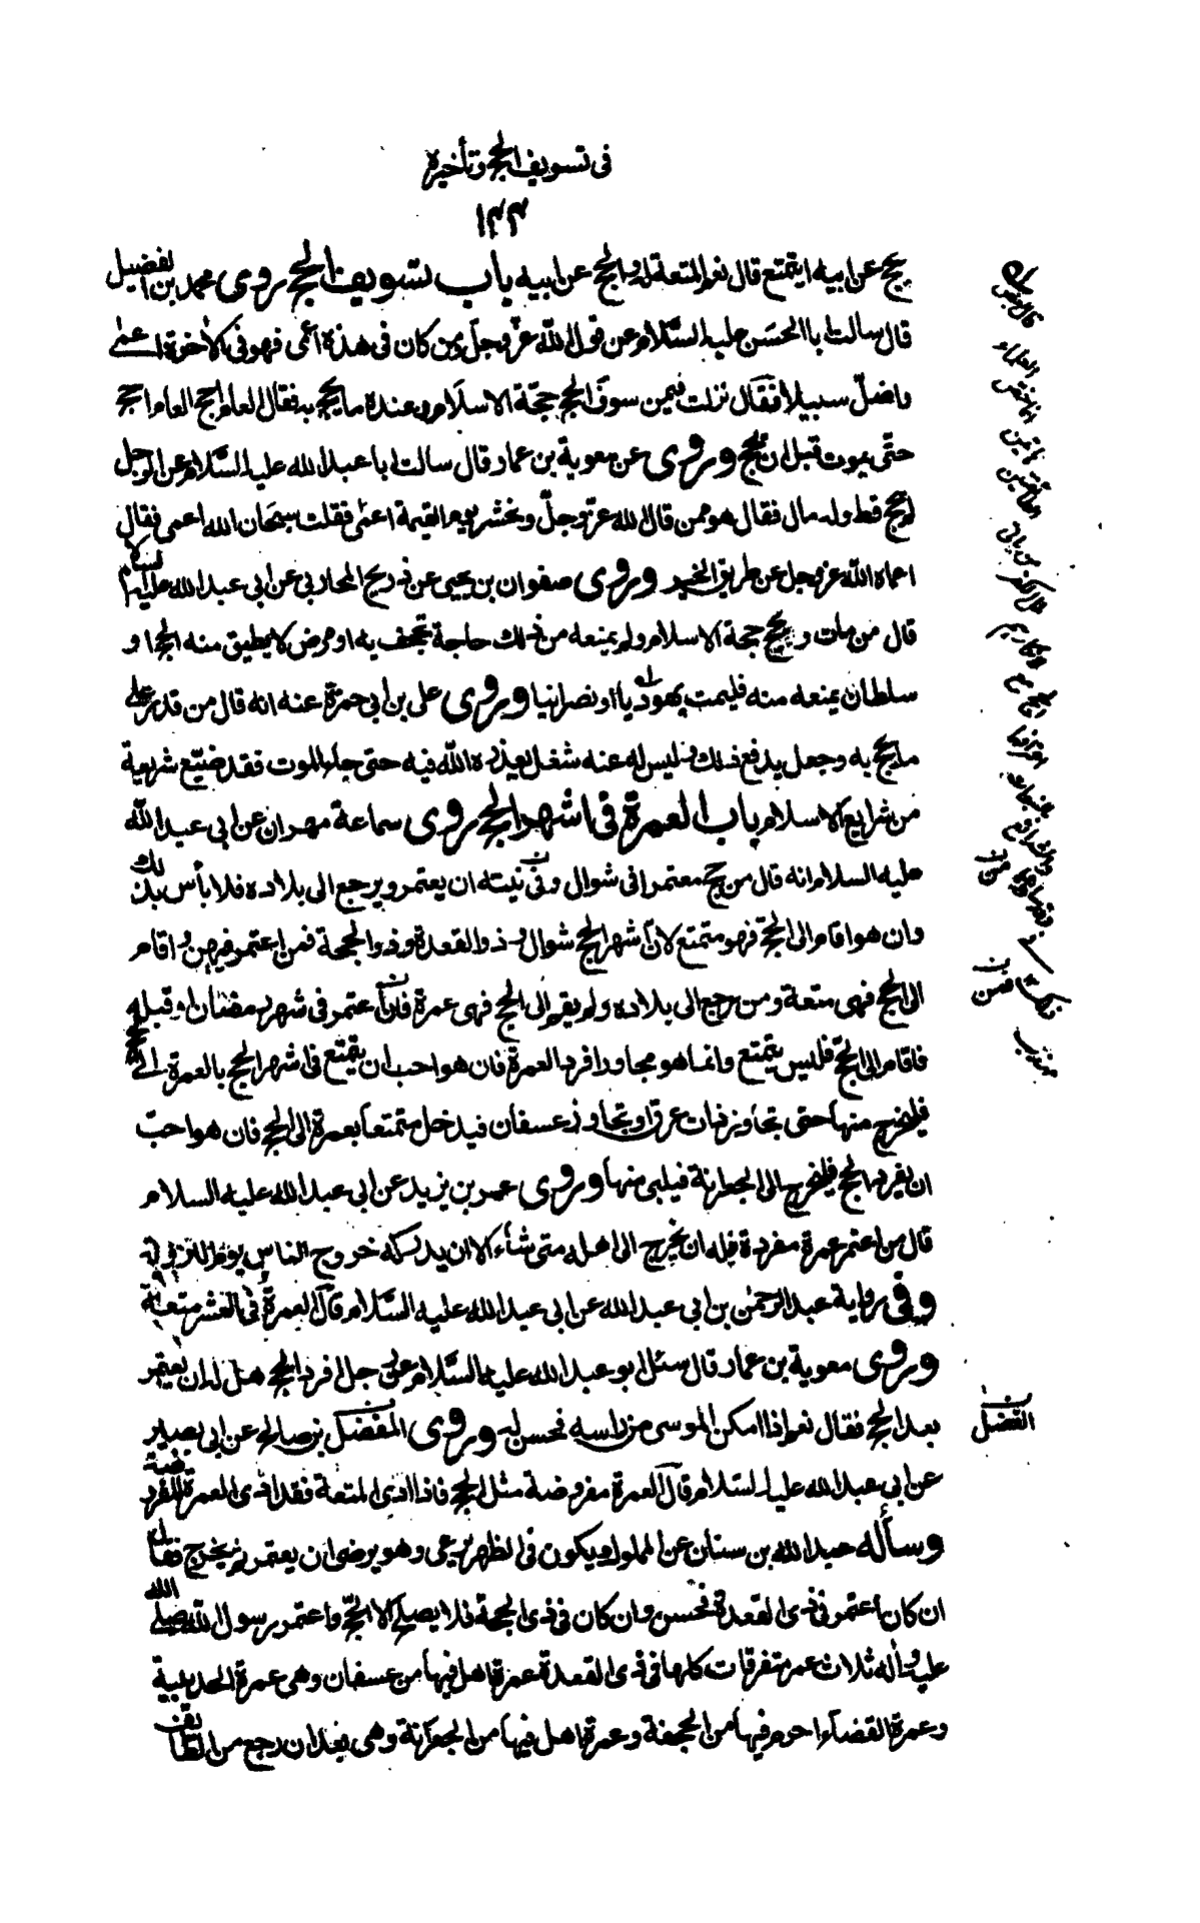 في تسويف الحج وتأخيره
١٣٣
يحج عن ابيه ايتمتع قال نعم المتعة له والحج عن ابيه باب تسويف الحج روى محمد بن الفضيل
قال سالت ابا الحسن عليه السلام عن قول الله عز وجل ومن كان في هذه اعمى فهو في الاخرة اعمى
واضل سبيلا فقال نزلت فيمن سوف الحج حجة الاسلام وعنده ما يحج به فقال العام احج العام احج
حتى يموت قبل ان يحج وروى عن معوية بن عمار قال سالت ابا عبد الله عليه السلام عن الرجل
لم يحج قط وله مال فقال هو ممن قال الله عز وجل ونحشره يوم القيمة اعمى فقلت سبحان الله اعمى فقال
اعماه الله عز وجل عن طريق الخير وروى صفوان بن يحيى عن ذريح المحاربي عن ابي عبد الله عليه السلام
قال من مات و لم يحج حجة الاسلام ولم يمنعه من ذلك حاجة تجحف به او مرض لا يطيق منه الحج او
سلطان يمنعه منه فليمت يهوديا او نصرانيا وروى علي بن ابي حمزة عنه انه قال من قدر على
ما يحج به وجعل يدفع ذلك وليس له عنه شغل يعذره الله فيه حتى جاء الموت فقد ضيع شريعة
من شرايع الاسلام باب العمرة في اشهر الحج روى سماعة مهران عن ابي عبد الله
عليه السلام انه قال من حج معتمرا في شوال وفي نيته ان يعتمر ويرجع الى بلاده فلا بأس بذلك
وان هو اقام الى الحج فهو متمتع لان اشهر الحج شوال وذو القعدة وذو الحجة فمن اعتمر فيهن واقام
الى الحج فهي متعة ومن رجع الى بلاده ولم يقم الى الحج فهي عمرة فان اعتمر في شهر رمضان او قبله
فاقام الى الحج فليس يتمتع وانما هو مجاور افرد العمرة فان هو احب ان يتمتع في اشهر الحج بالعمرة الى الحج
فليخرج منها حتى يجاوز ذات عرق او يجاوز عسفان فيدخل متمتعا بعمرة الى الحج فان هو احب
ان يفرد الحج فليخرج الى الجعرانة فيلبي منها وروى عمر بن يزيد عن ابي عبد الله عليه السلام
قال من اعتمر عمرة مفردة فله ان يخرج الى اهله متى شاء الا ان يدركه خروج الناس يوم التروية
وفي رواية عبد الرحمن بن ابي عبد الله عن ابي عبد الله عليه السلام قال العمرة في العشر متعة
وروى معوية بن عمار قال سئل ابو عبد الله عليه السلام عن رجل افرد الحج هل له ان يعتمر
بعد الحج فقال نعم اذا امكن الموسى من راسه فحسن له وروى المفضل بن صالح عن ابي بصير
عن ابي عبد الله عليه السلام قال العمرة مفروضة مثل الحج فاذا ادى المتعة فقد ادى العمرة المفروضة
وسأله عبد الله بن سنان عن المملوك يكون في الظهر يرعى وهو يرضى ان يعتمر ثم يخرج فقال
ان كان اعتمر في ذي القعدة فحسن وان كان في ذي الحجة فلا يصلح الا الحج واعتمر رسول الله صلى الله
عليه واله ثلاث عمر متفرقات كلها في ذي القعدة عمرة اهل فيها من عسفان وهي عمرة الحديبية
وعمرة القضاء احرم فيها من الجحفة وعمرة اهل فيها من الجعرانة وهي بعد ان رجع من الطائف
الفضل